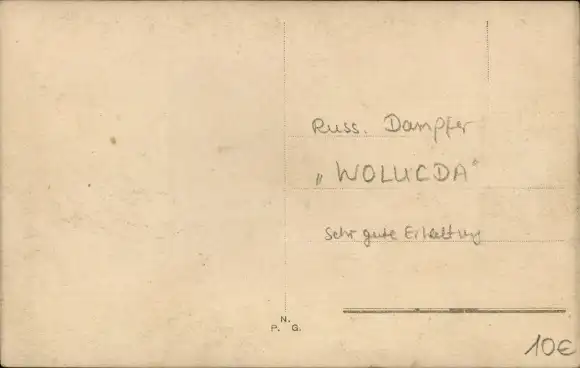 Russ. Dampfer
„WOLUCDA"
Sehr gute Erhaltung
N.
P. G.
10€